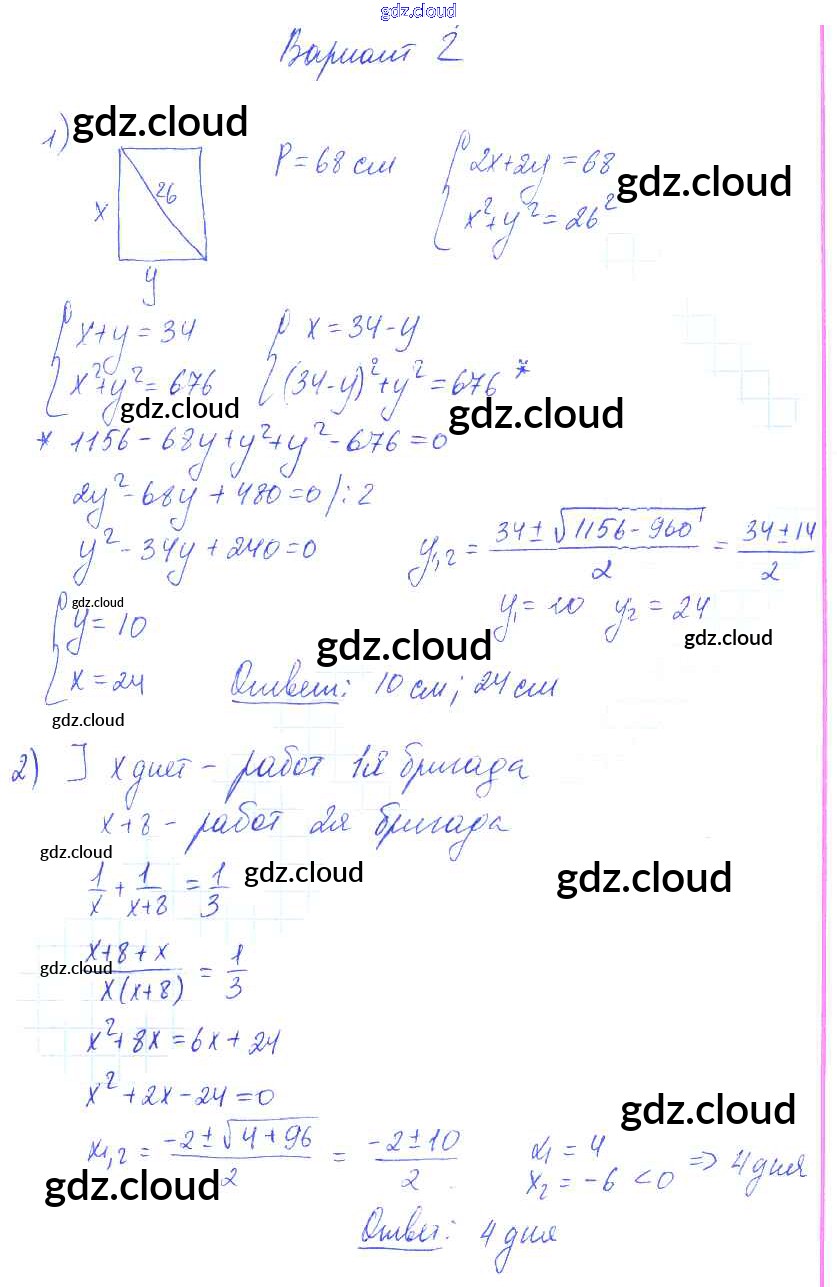 gdz.cloud
Вариант 2
1) gdz.cloud
P = 68 см
{ 2x+2y = 68
x²+y² = 26²
gdz.cloud
26
x
y
{ x+y = 34
x²+y² = 676
{ x = 34-y
(34-y)²+y² = 676 *
gdz.cloud
gdz.cloud
* 1156 - 68y + y² + y² - 676 = 0
2y² - 68y + 480 = 0 /: 2
y² - 34y + 240 = 0
y1,2 = (34 ± √(1156 - 960))/2 = (34 ± 14)/2
y1 = 10 y2 = 24
gdz.cloud
gdz.cloud
gdz.cloud
{ y = 10
x = 24
Ответ: 10 см; 24 см
gdz.cloud
2) ] x дней - работ 1я бригада
x+8 - работ 2я бригада
gdz.cloud
gdz.cloud
gdz.cloud
1/x + 1/(x+8) = 1/3
gdz.cloud
(x+8+x)/(x(x+8)) = 1/3
x² + 8x = 6x + 24
x² + 2x - 24 = 0
gdz.cloud
x1,2 = (-2 ± √(4 + 96))/2 = (-2 ± 10)/2
x1 = 4
x2 = -6 < 0 => 4 дня
gdz.cloud
Ответ: 4 дня